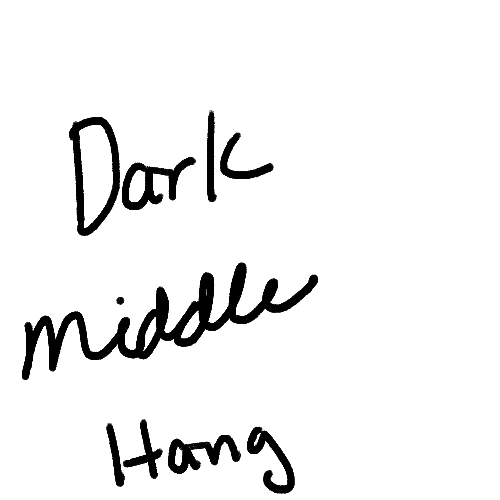 Dark
middle
Hang